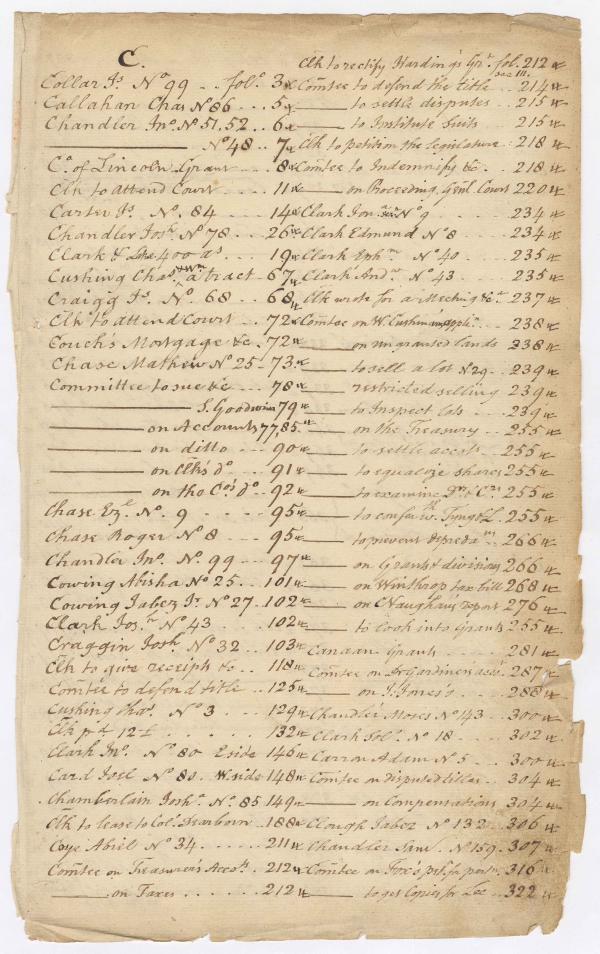 C.
Collar Js. No 99 . . folo. 3
Callahan Chas No 86 . . 5
Chandler Jno. No 51, 52 . . 6
——— No 48 . . 7
Co. of Lincoln Grant . . . 8
Clk to attend Court . . . 11
Carter Js. No. 84 . . . 14
Chandler Josh. No 78 . . . 26
Clark & Lake 400 as . . 19
Cushing Chas & Wm a tract . 67
Craigg Js. No. 68 . . . 68
Clk to attend Court . . . 72
Couch's Mortgage &c . . 72
Chase Mathew No 25 . . 73
Committee to sue &c . . . 78
——— S. Goodwin 79
——— on Accounts 77, 85
——— on ditto . . . 90
——— on Clk's do . . . 91
——— on the Co's do . . 92
Chase Ezl. No. 9 . . . 95
Chase Roger No 8 . . . 95
Chandler Jno. No. 99 . . . 97
Cowing Abisha No 25 . . 101
Cowing Jabez Jr No 27 . 102
Clark Jos. No 43 . . . 102
Craggin Josh. No 32 . . 103
Clk to give receipts &c . . 118
Comtee to defend title . . 125
Cushing Thas. No 3 . . . 129
Clk 12 . . . 132
Clark Jno. No 80 Eside 146
Card Joel No 80. Wside 148
Chamberlain Josha. No. 85 149
Clk to lease to Col. Dearborn 188
Coye Abiel No 34 . . . 211
Comtee on Treasurer's Accots 212
——— on Taxes . . . 212
Clk to rectify Harding's Gr. fol. 212
Comtee to defend the title . . 214
——— to settle disputes . . 215
——— to Institute Suits . . 215
Clk to petition the Legislature . 218
Comtee to Indemnify &c . . 218
——— on Proceeding Genl. Court 220
Clark Jon. No 9 . . . 234
Clark Edmund No 8 . . . 234
Clark Ephm No 40 . . . 235
Clark Andw No 43 . . . 235
Clk wrote for a Meeting &c . 237
Comtee on W. Cushman's . . 238
——— on ungranted lands 238
——— to sell a lot N 29 . . 239
——— restricted selling 239
——— to Inspect lots . . . 239
——— on the Treasury . . 255
——— to settle accots . . 255
——— to equalize shares 255
——— to examine Drs & Crs 255
——— to confer w. Tyng & L. 255
——— to prevent depreda 266
——— on Grants & divisions 266
——— on Winthrop tax bill 268
——— on C Vaughan's report 276
——— to look into Grants 255
Canaan Grants . . . 281
Comtee on Dr Gardiner's acct 287
——— on J. Jones's . . . 288
Chandler Moses No 143 . . 300
Clark Sol. No 18 . . . 302
Carron Adam No 5 . . . 300
Comtee on disputed titles . . 304
——— on Compensations 304
Clough Jabez No 132 . . 306
Chandler Saml. No 159 . 307
Comtee on Fox's pet. for part. . 316
——— to get Copies for Lee . . 322